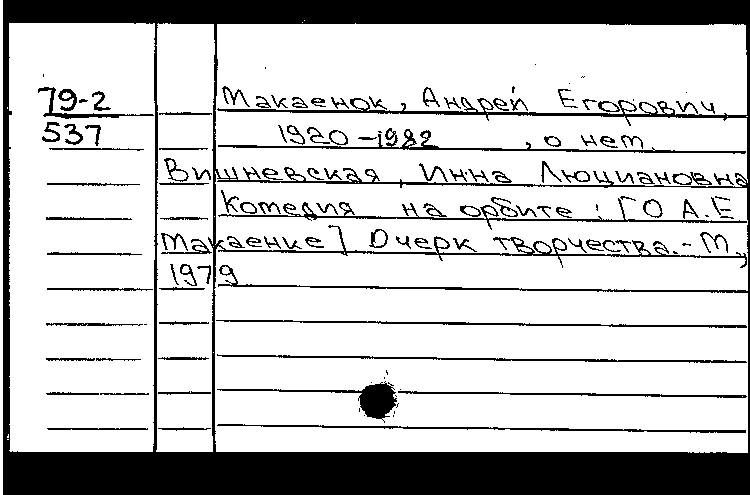 79-2 Макаенок, Андрей Егорович,
537 1920-1982, о нем.
Вишневская, Инна Люциановна
Комедия на орбите: [О А.Е
Макаенке] Очерк творчества.- М.,
1979